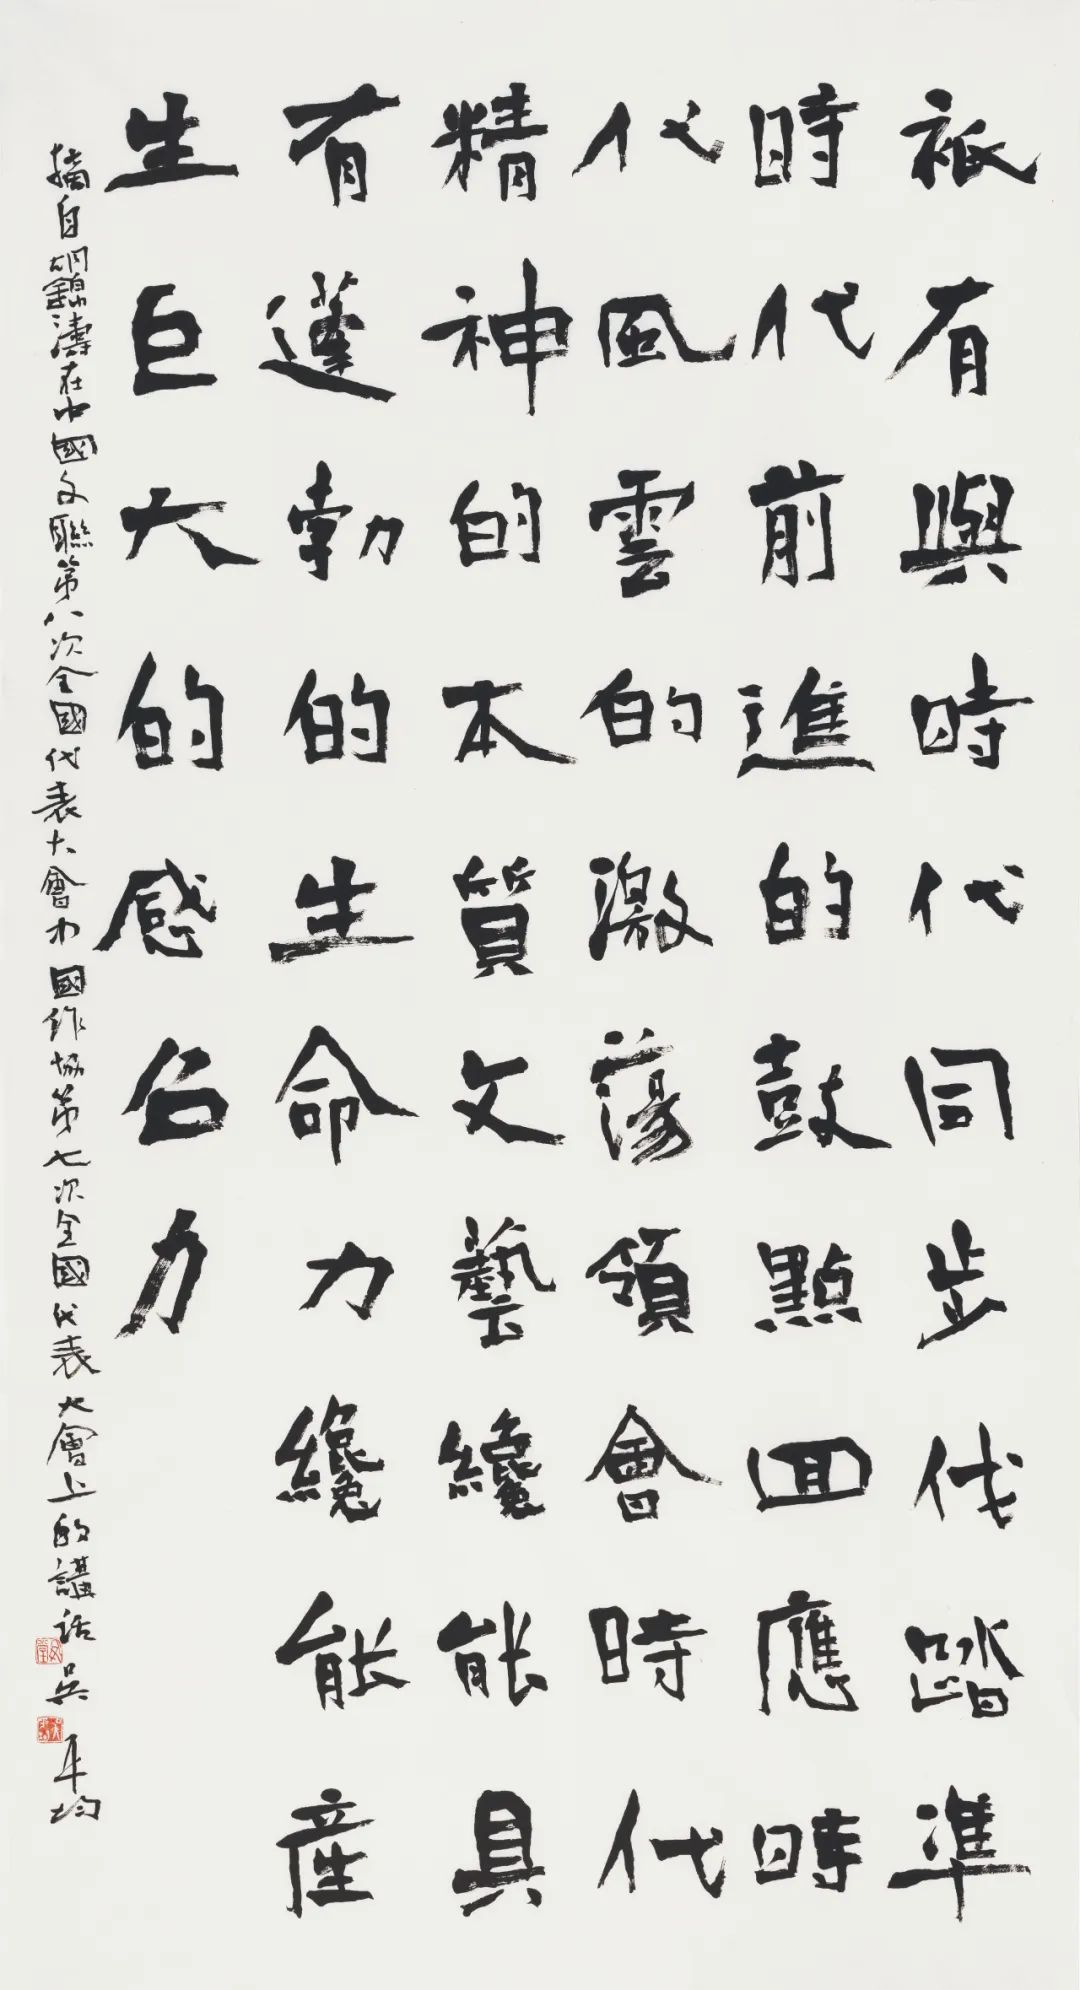 祇有與時代同步伐踏準
時代前進的鼓點回應時
代風雲的激蕩領會時代
精神的本質文藝纔能具
有蓬勃的生命力纔能産
生巨大的感召力
摘自胡錦濤在中國文聯第八次全國代表大會中國作協第七次全國代表大會上的講話 吳